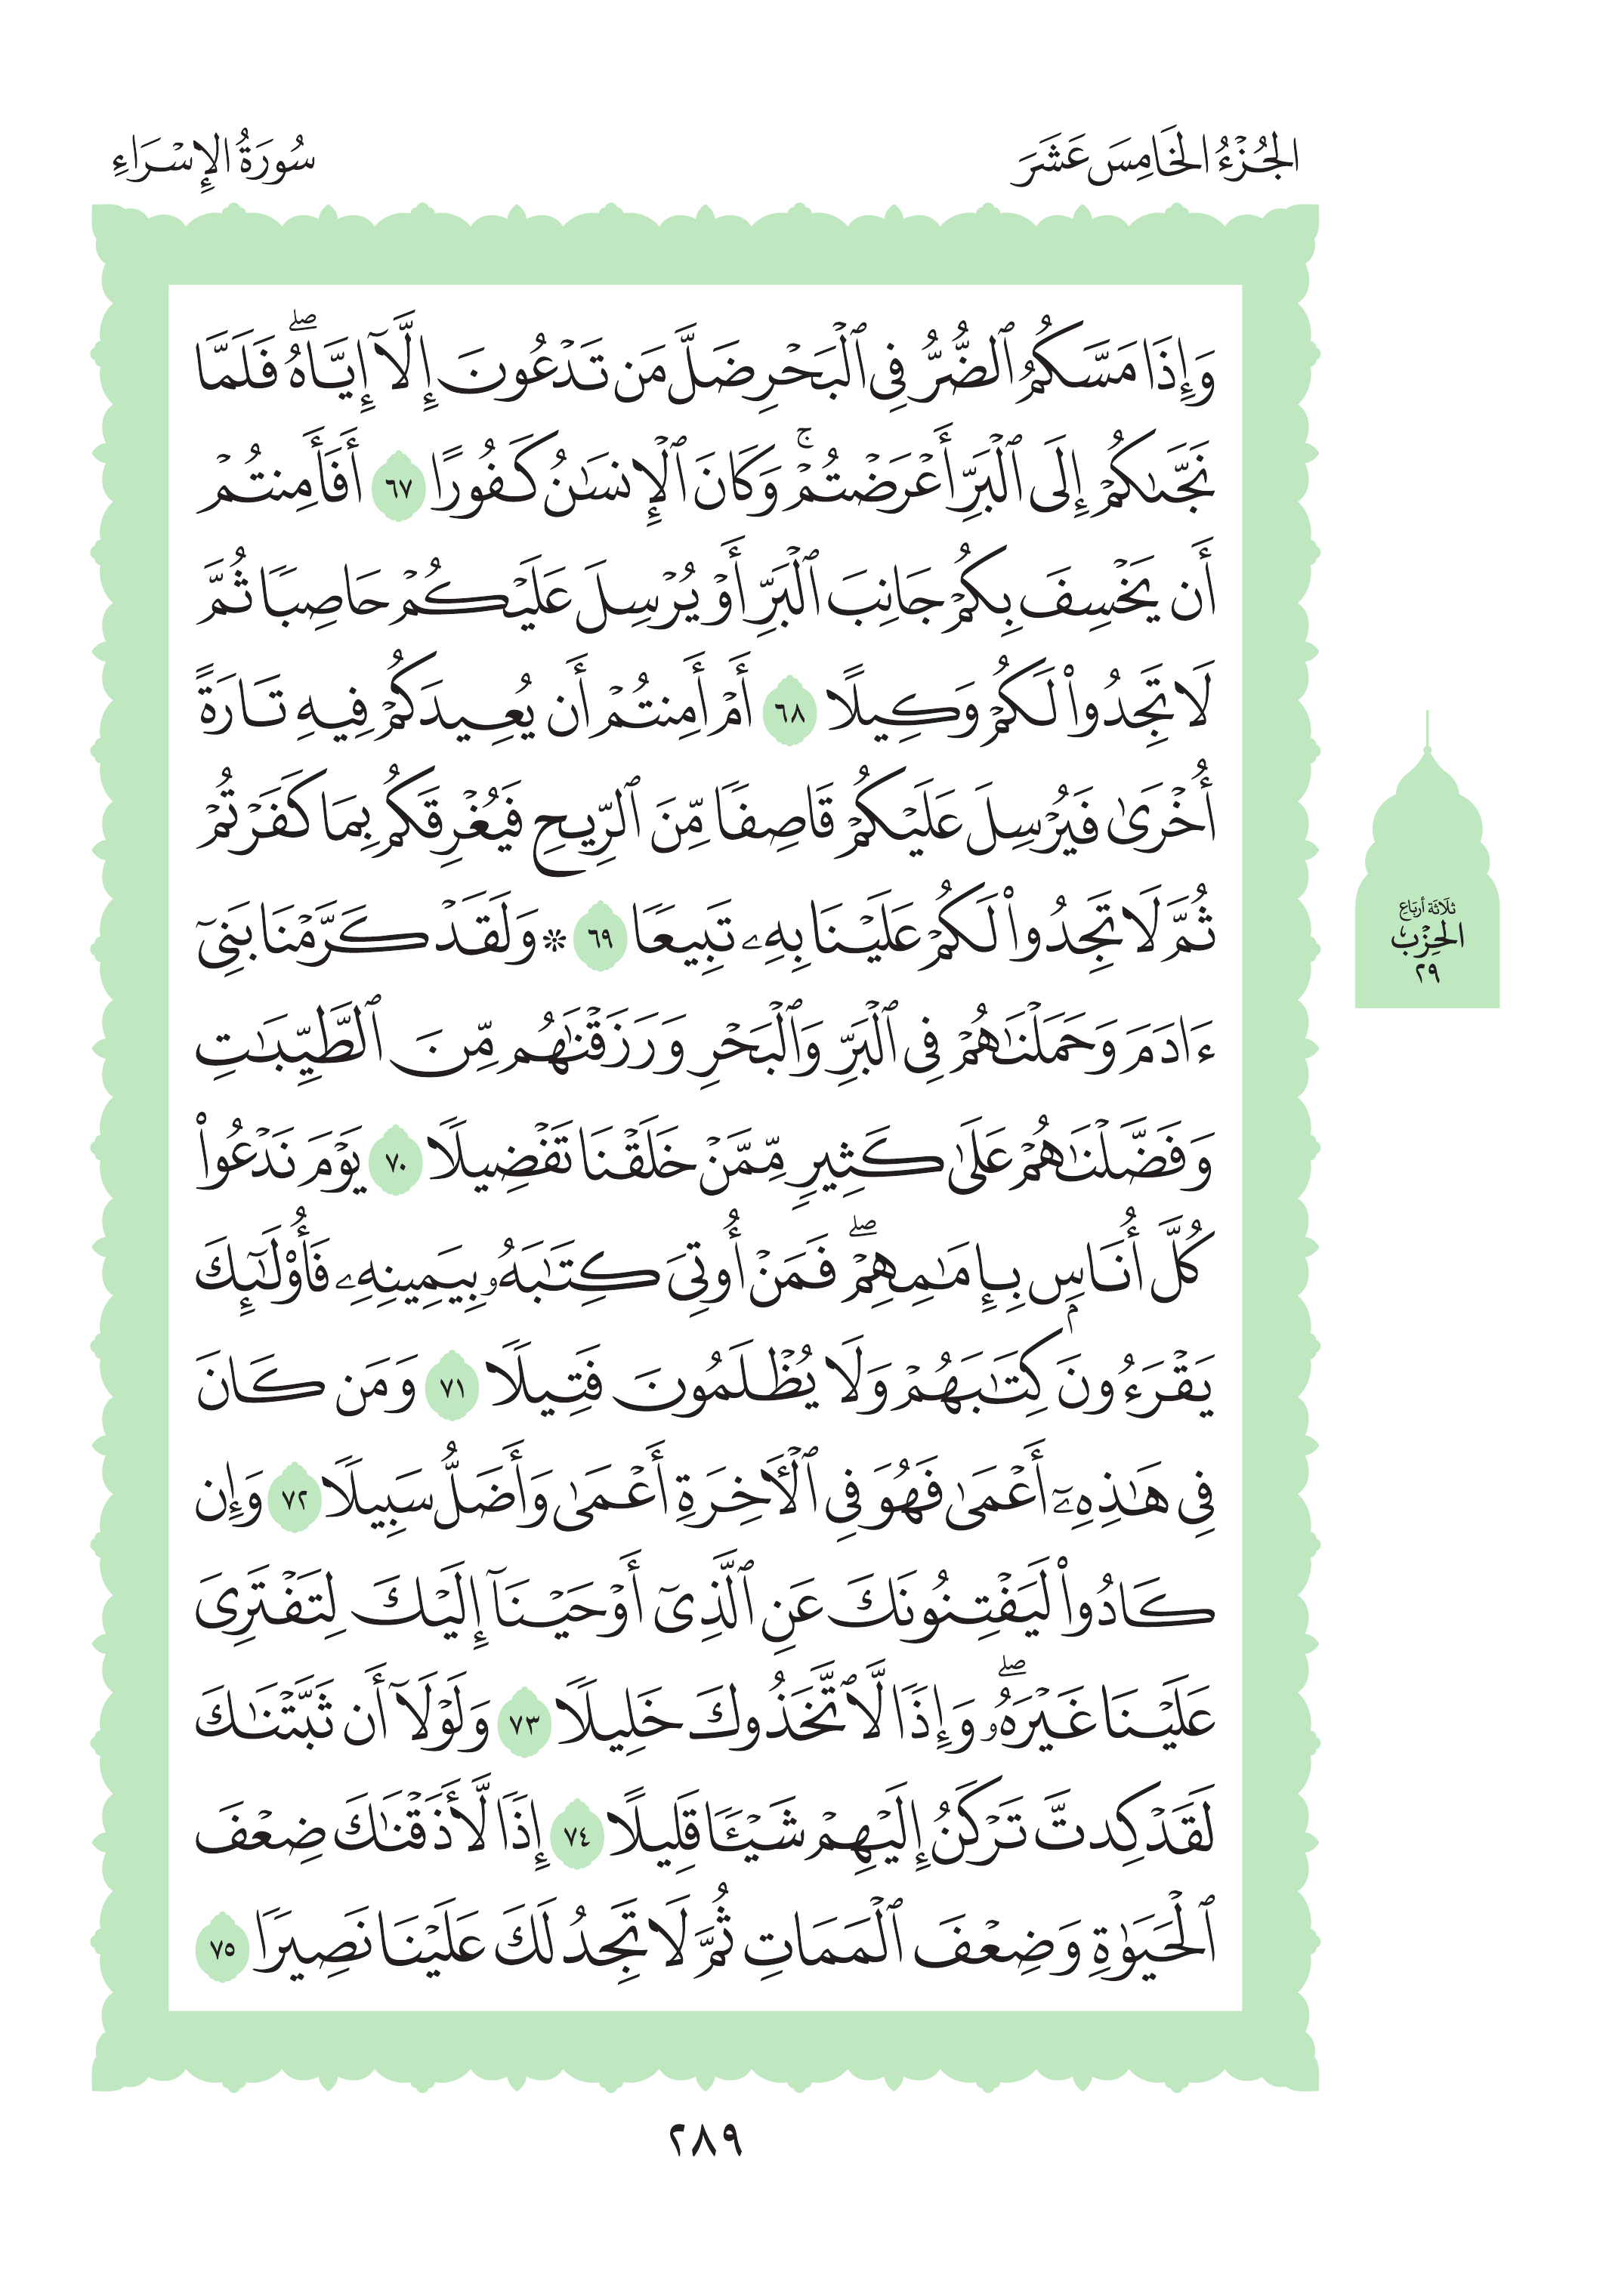 الجُزْءُ الخَامِسَ عَشَرَ
سُورَةُ الإِسْرَاءِ
وَإِذَا مَسَّكُمُ ٱلضُّرُّ فِي ٱلۡبَحۡرِ ضَلَّ مَن تَدۡعُونَ إِلَّآ إِيَّاهُۖ فَلَمَّا
نَجَّىٰكُمۡ إِلَى ٱلۡبَرِّ أَعۡرَضۡتُمۡۚ وَكَانَ ٱلۡإِنسَٰنُ كَفُورًا ٦٧ أَفَأَمِنتُمۡ
أَن يَخۡسِفَ بِكُمۡ جَانِبَ ٱلۡبَرِّ أَوۡ يُرۡسِلَ عَلَيۡكُمۡ حَاصِبٗا ثُمَّ
لَا تَجِدُواْ لَكُمۡ وَكِيلًا ٦٨ أَمۡ أَمِنتُمۡ أَن يُعِيدَكُمۡ فِيهِ تَارَةً
أُخۡرَىٰ فَيُرۡسِلَ عَلَيۡكُمۡ قَاصِفٗا مِّنَ ٱلرِّيحِ فَيُغۡرِقَكُم بِمَا كَفَرۡتُمۡ
ثُمَّ لَا تَجِدُواْ لَكُمۡ عَلَيۡنَا بِهِۦ تَبِيعٗا ٦٩ ۞ وَلَقَدۡ كَرَّمۡنَا بَنِيٓ
ءَادَمَ وَحَمَلۡنَٰهُمۡ فِي ٱلۡبَرِّ وَٱلۡبَحۡرِ وَرَزَقۡنَٰهُم مِّنَ ٱلطَّيِّبَٰتِ
وَفَضَّلۡنَٰهُمۡ عَلَىٰ كَثِيرٖ مِّمَّنۡ خَلَقۡنَا تَفۡضِيلٗا ٧٠ يَوۡمَ نَدۡعُواْ
كُلَّ أُنَاسِۭ بِإِمَٰمِهِمۡۖ فَمَنۡ أُوتِيَ كِتَٰبَهُۥ بِيَمِينِهِۦ فَأُوْلَٰٓئِكَ
يَقۡرَءُونَ كِتَٰبَهُمۡ وَلَا يُظۡلَمُونَ فَتِيلٗا ٧١ وَمَن كَانَ
فِي هَٰذِهِۦٓ أَعۡمَىٰ فَهُوَ فِي ٱلۡأٓخِرَةِ أَعۡمَىٰ وَأَضَلُّ سَبِيلٗا ٧٢ وَإِن
كَادُواْ لَيَفۡتِنُونَكَ عَنِ ٱلَّذِيٓ أَوۡحَيۡنَآ إِلَيۡكَ لِتَفۡتَرِيَ
عَلَيۡنَا غَيۡرَهُۥۖ وَإِذٗا لَّٱتَّخَذُوكَ خَلِيلٗا ٧٣ وَلَوۡلَآ أَن ثَبَّتۡنَٰكَ
لَقَدۡ كِدتَّ تَرۡكَنُ إِلَيۡهِمۡ شَيۡـٔٗا قَلِيلًا ٧٤ إِذٗا لَّأَذَقۡنَٰكَ ضِعۡفَ
ٱلۡحَيَوٰةِ وَضِعۡفَ ٱلۡمَمَاتِ ثُمَّ لَا تَجِدُ لَكَ عَلَيۡنَا نَصِيرٗا ٧٥
ثَلَاثَة أَربَاعِ
الحِزْب
٢٩
٢٨٩